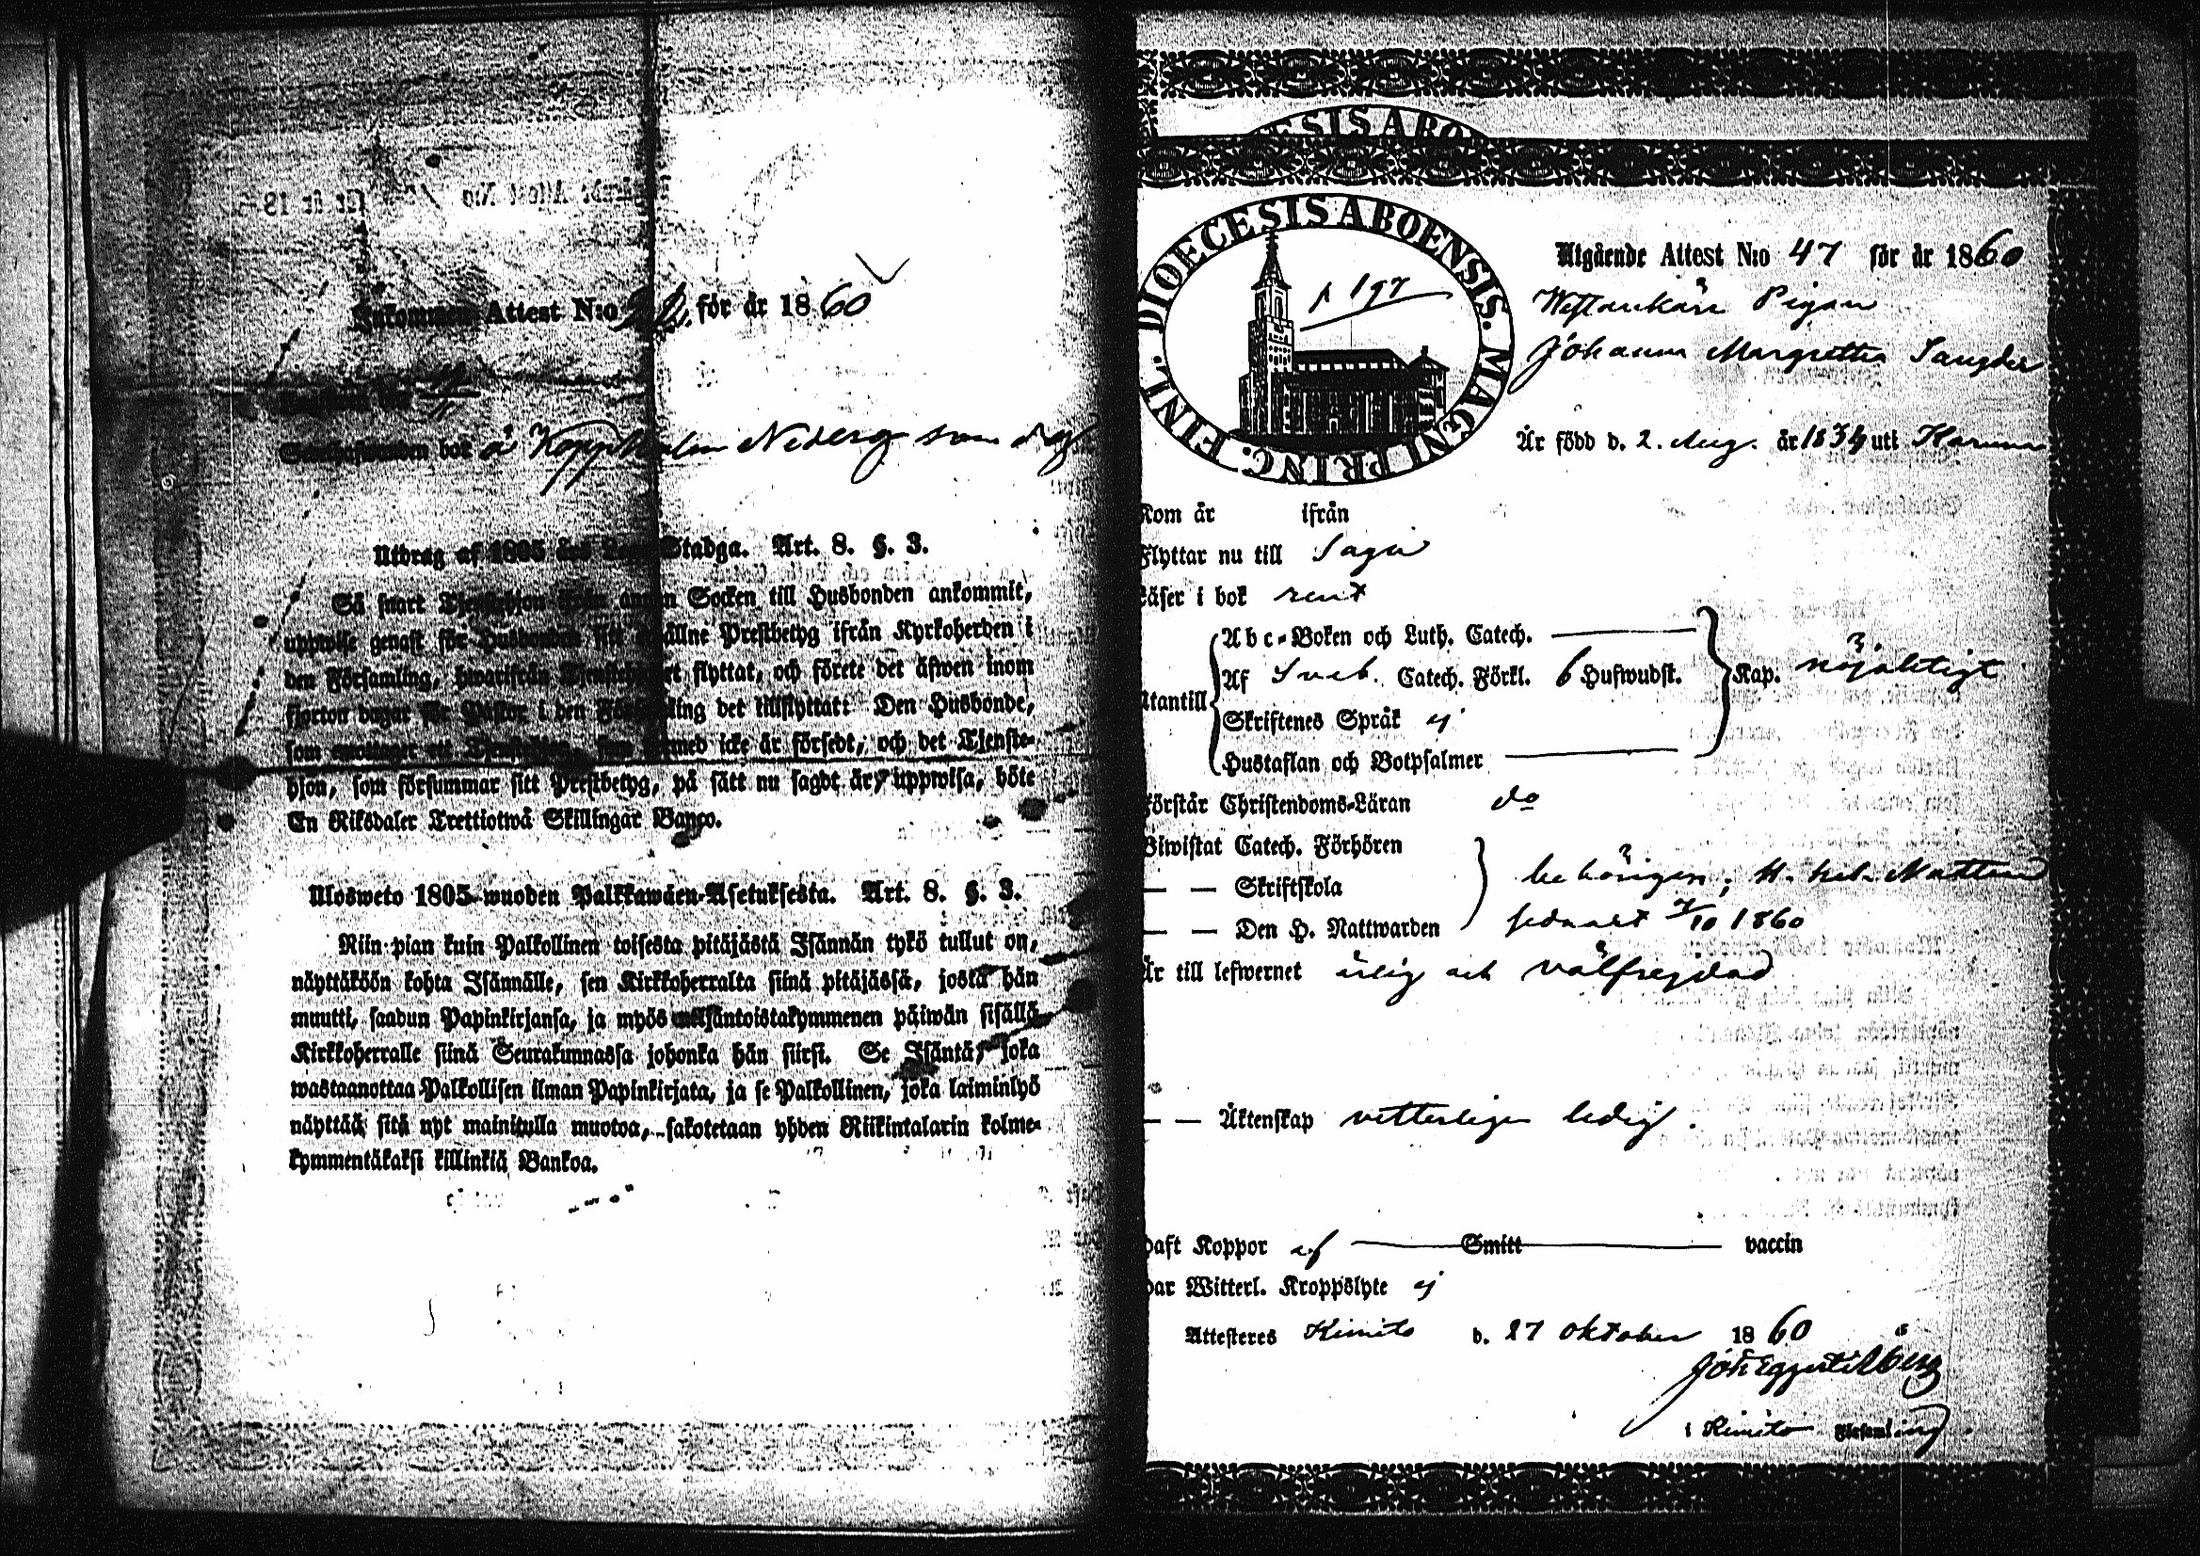 Inkommen Attest N:o för år 1860
bok å Koppholm som
Utdrag af 1805 års Lego-Stadga. Art. 8. §. 3.
Så snart Tjenstehjon ifrån annan Socken till Husbonden ankommit,
uppwise genast för Husbonden sitt Prestbetyg ifrån Kyrkoherden i
den Församling, hwarifrån Tjenstehjonet flyttat, och förete det äfwen inom
fjorton dagar för Pastor i den Församling det tillflyttat: Den Husbonde,
som emottager ett Tjenstehjon, som dermed icke är försedt, och det Tjenste-
hjon, som försummar sitt Prestbetyg, på sätt nu sagdt är, uppwisa, böte
En Riksdaler Trettiotwå Skillingar Banco.
Ulosweto 1805-wuoden Palkkawäen-Asetuksesta. Art. 8. §. 3.
Niin pian kuin Palkollinen toisesta pitäjästä Isännän tykö tullut on,
näyttäköön kohta Isännälle, sen Kirkkoherralta siinä pitäjässä, josta hän
muutti, saadun Papinkirjansa, ja myös neljäntoistakymmenen päiwän sisällä
Kirkkoherralle siinä Seurakunnassa johonka hän siirsi. Se Isäntä, joka
wastaanottaa Palkollisen ilman Papinkirjata, ja se Palkollinen, joka laiminlyö
näyttää sitä nyt mainitulla muotoa, sakotetaan yhden Riikintalarin kolme-
kymmentäkaksi killinkiä Bankoa.
ESIS ABO
DIOECESIS ABOENSIS. MAGNI PRINC. FINL.
p 197
Utgående Attest N:o 47 för år 1860
Pigan
Johanna Margretha
Är född d. 2. Aug. år 1834 uti Karuna
Kom år ifrån
Flyttar nu till Sagu
Läser i bok rent
Abc-Boken och Luth. Catech.
Af Sveb. Catech. Förkl. 6 Hufwudst. Kap. nöjaktigt
Utantill
Skriftenes Språk ej
Hustaflan och Botpsalmer
Förstår Christendoms-Läran do
Biwistat Catech. Förhören
— — Skriftskola behörigen; H. hel. Nattvard
— — Den H. Nattwarden sednast 7/10 1860
Är till lefwernet ärlig och välfrejdad
— — Äktenskap vetterligen ledig.
haft Koppor af Smitt vaccin
har Witterl. Kroppslyte ej
Attesteras Kimito d. 27 Oktober 1860
i Kimito Församling